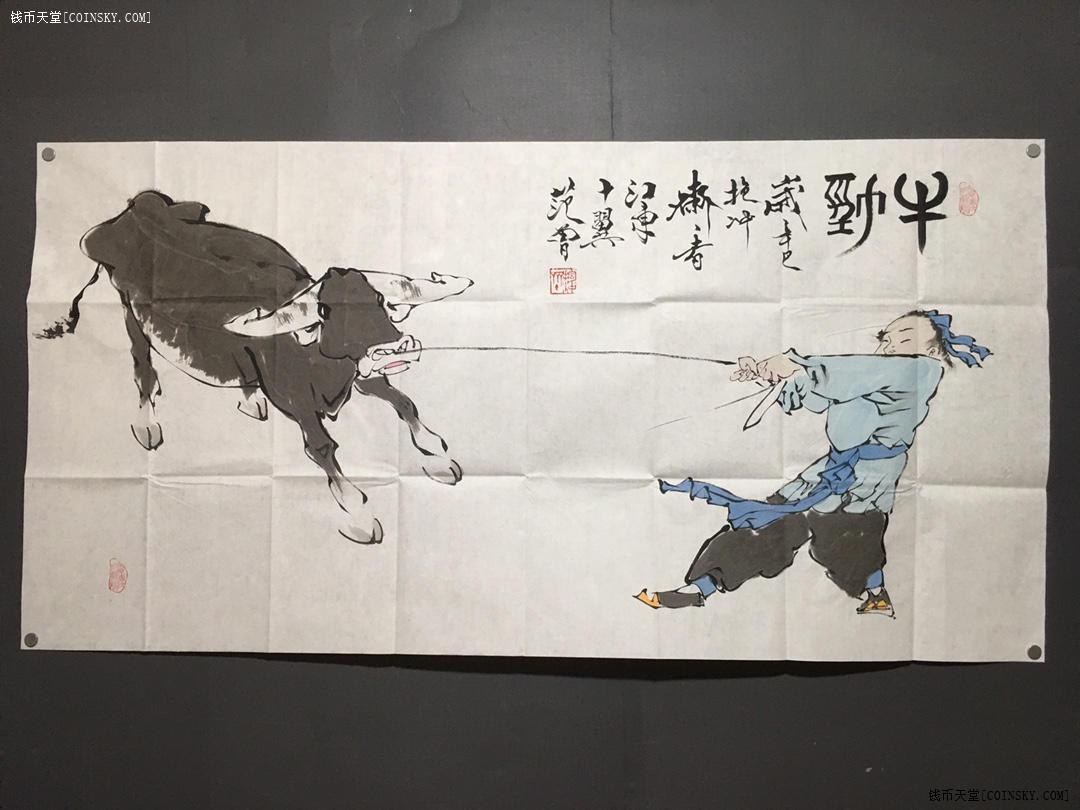 钱币天堂[COINSKY.COM]
牛勁
歲辛巳
抱冲
齋
江東
十翼
范曾
钱币天堂[COINSKY.COM]